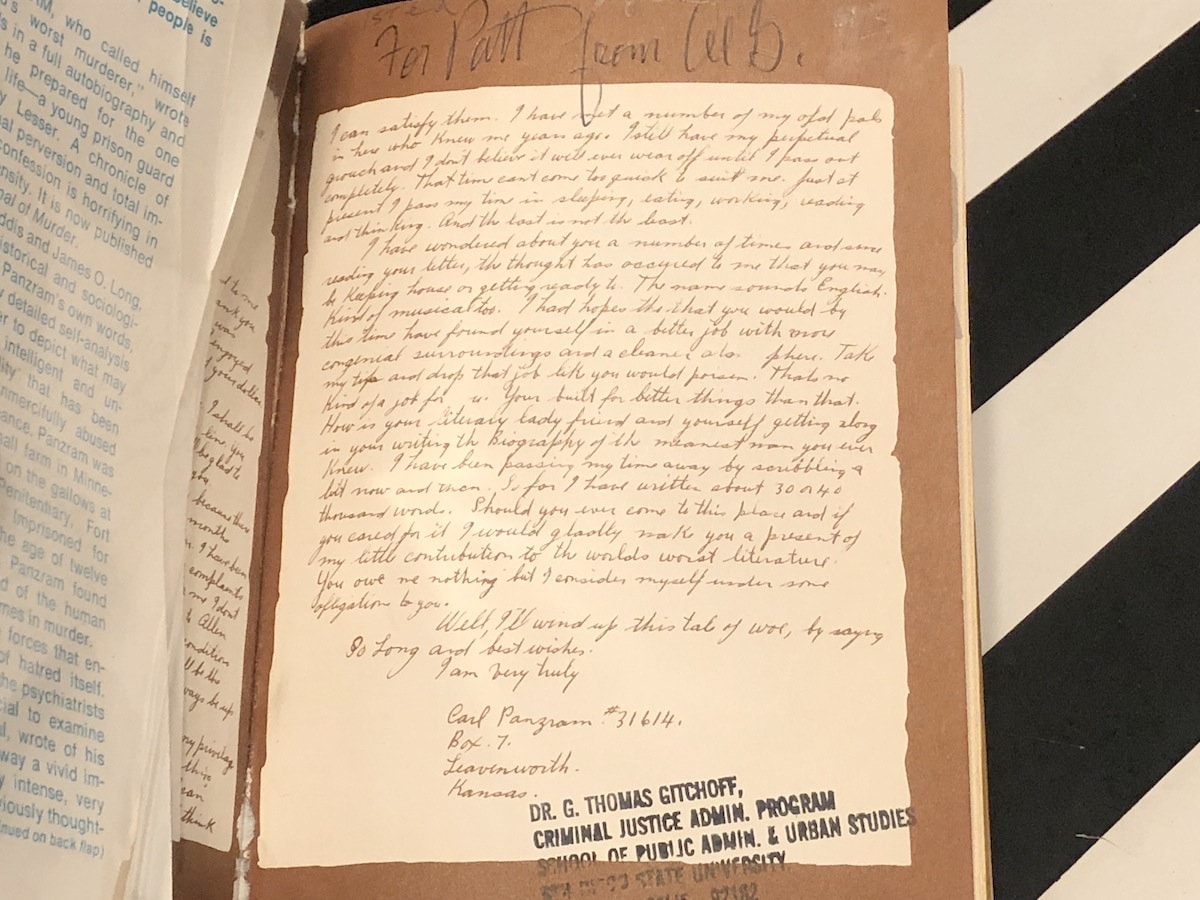 elieve
people is
M, who called himself
's worst murderer," wrote
s in a full autobiography and
he prepared for the one
life—a young prison guard
y Lesser. A chronicle of
nal perversion and total im-
confession is horrifying in
ensity. It is now published
nal of Murder.
ddis and James O. Long,
istorical and sociologi-
Panzram's own words,
detailed self-analysis
er to depict what may
intelligent, and un-
lity" that has been
nmercifully abused
ance, Panzram was
all farm in Minne-
on the gallows at
Penitentiary, Fort
Imprisoned for
he age of twelve
Panzram found
d of the human
mes in murder.
forces that en-
of hatred itself.
he psychiatrists
cial to examine
l, wrote of his
way a vivid im-
y intense, very
viously thought-
nued on back flap)
d to me
ank you
was
enjoyed
your dollar
I shall be
line you
be glad to
you
because there
months
I have been
complaints
me I don't
to Allen
condition
ll be the
ways be up
my privilege
this
can
think
For Patt from Al G.
I can satisfy them. I have met a number of my ofd pals
in here who knew me years ago. I still have my perpetual
grouch and I don't believe it will ever wear off until I pass out
completely. That time cant come too quick to suit me. Just at
present I pass my time in sleeping, eating, working, reading
and thinking. And the last is not the least.
I have wondered about you a number of times and since
reading your letter, the thought has occured to me that you may
be Keeping house or getting ready to. The name sounds English.
Kind of musical too. I had hopes tho that you would by
this time have found yourself in a better job with more
congenial surroundings and a cleaner atmos phere. Take
my tip and drop that job like you would poison. Thats no
Kind of a job for u. Your built for better things than that.
How is your Literary lady friend and yourself getting along
in your writing the Biography of the meanest man you ever
Knew. I have been passing my time away by scribbling a
bit now and then. So far I have written about 30 or 40
thousand words. Should you ever come to this place and if
you cared for it I would gladly make you a present of
my little contribution to the worlds worst literature.
You owe me nothing but I consider myself under some
obligation to you.
Well, I'll wind up this tale of woe, by saying
So Long and best wishes.
I am very truly
Carl Panzram #31614.
Box. 7.
Leavenworth.
Kansas.
DR. G. THOMAS GITCHOFF,
CRIMINAL JUSTICE ADMIN. PROGRAM
SCHOOL OF PUBLIC ADMIN. & URBAN STUDIES
STATE UNIVERSITY
92182